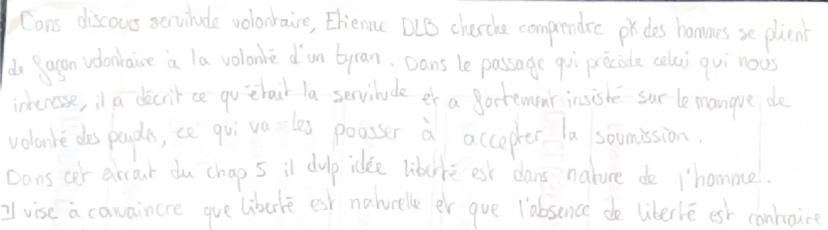 Dans discours servitude volontaire, Etienne DLB cherche comprendre pk des hommes se plient
de façon volontaire à la volonté d'un tyran. Dans le passage qui précède celui qui nous
interesse, il a décrit ce qu'était la servitude et a fortement insisté sur le manque de
volonté des peuples, ce qui va les pousser à accepter la soumission.
Dans cet extrait du chap 5 il dvlp idée liberté est dans nature de l'homme.
Il vise à convaincre que liberté est naturelle et que l'absence de liberté est contraire